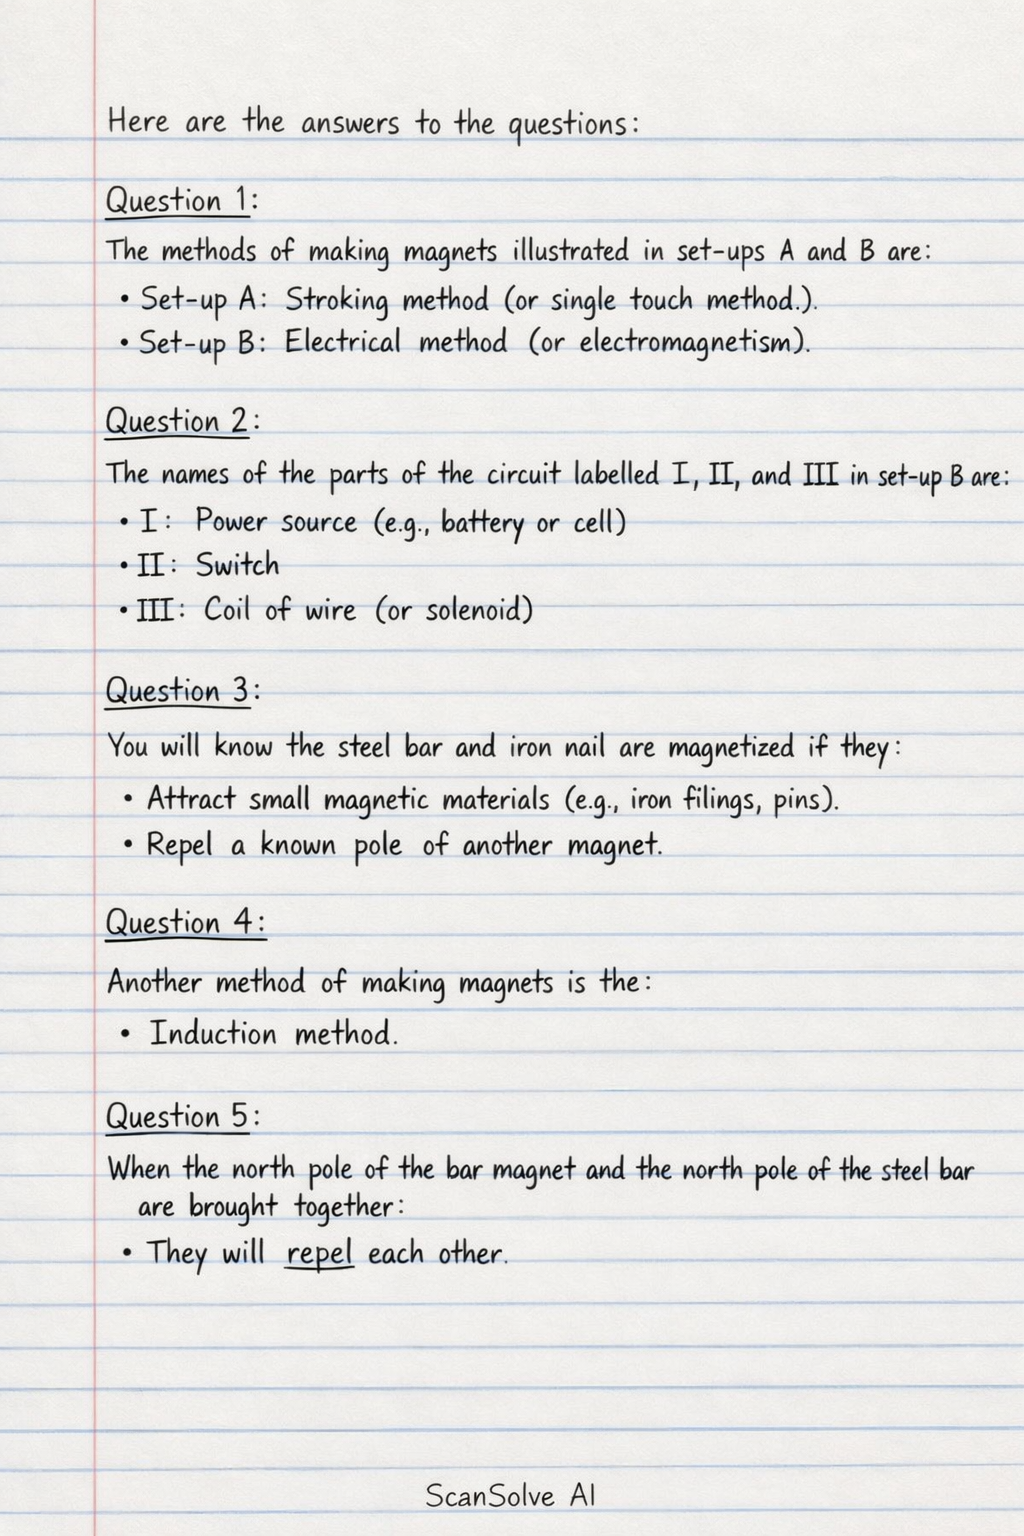 Here are the answers to the questions:
Question 1:
The methods of making magnets illustrated in set-ups A and B are:
• Set-up A: Stroking method (or single touch method.).
• Set-up B: Electrical method (or electromagnetism).
Question 2:
The names of the parts of the circuit labelled I, II, and III in set-up B are:
• I: Power source (e.g., battery or cell)
• II: Switch
• III: Coil of wire (or solenoid)
Question 3:
You will know the steel bar and iron nail are magnetized if they:
• Attract small magnetic materials (e.g., iron filings, pins).
• Repel a known pole of another magnet.
Question 4:
Another method of making magnets is the:
• Induction method.
Question 5:
When the north pole of the bar magnet and the north pole of the steel bar
are brought together:
• They will repel each other.
ScanSolve AI